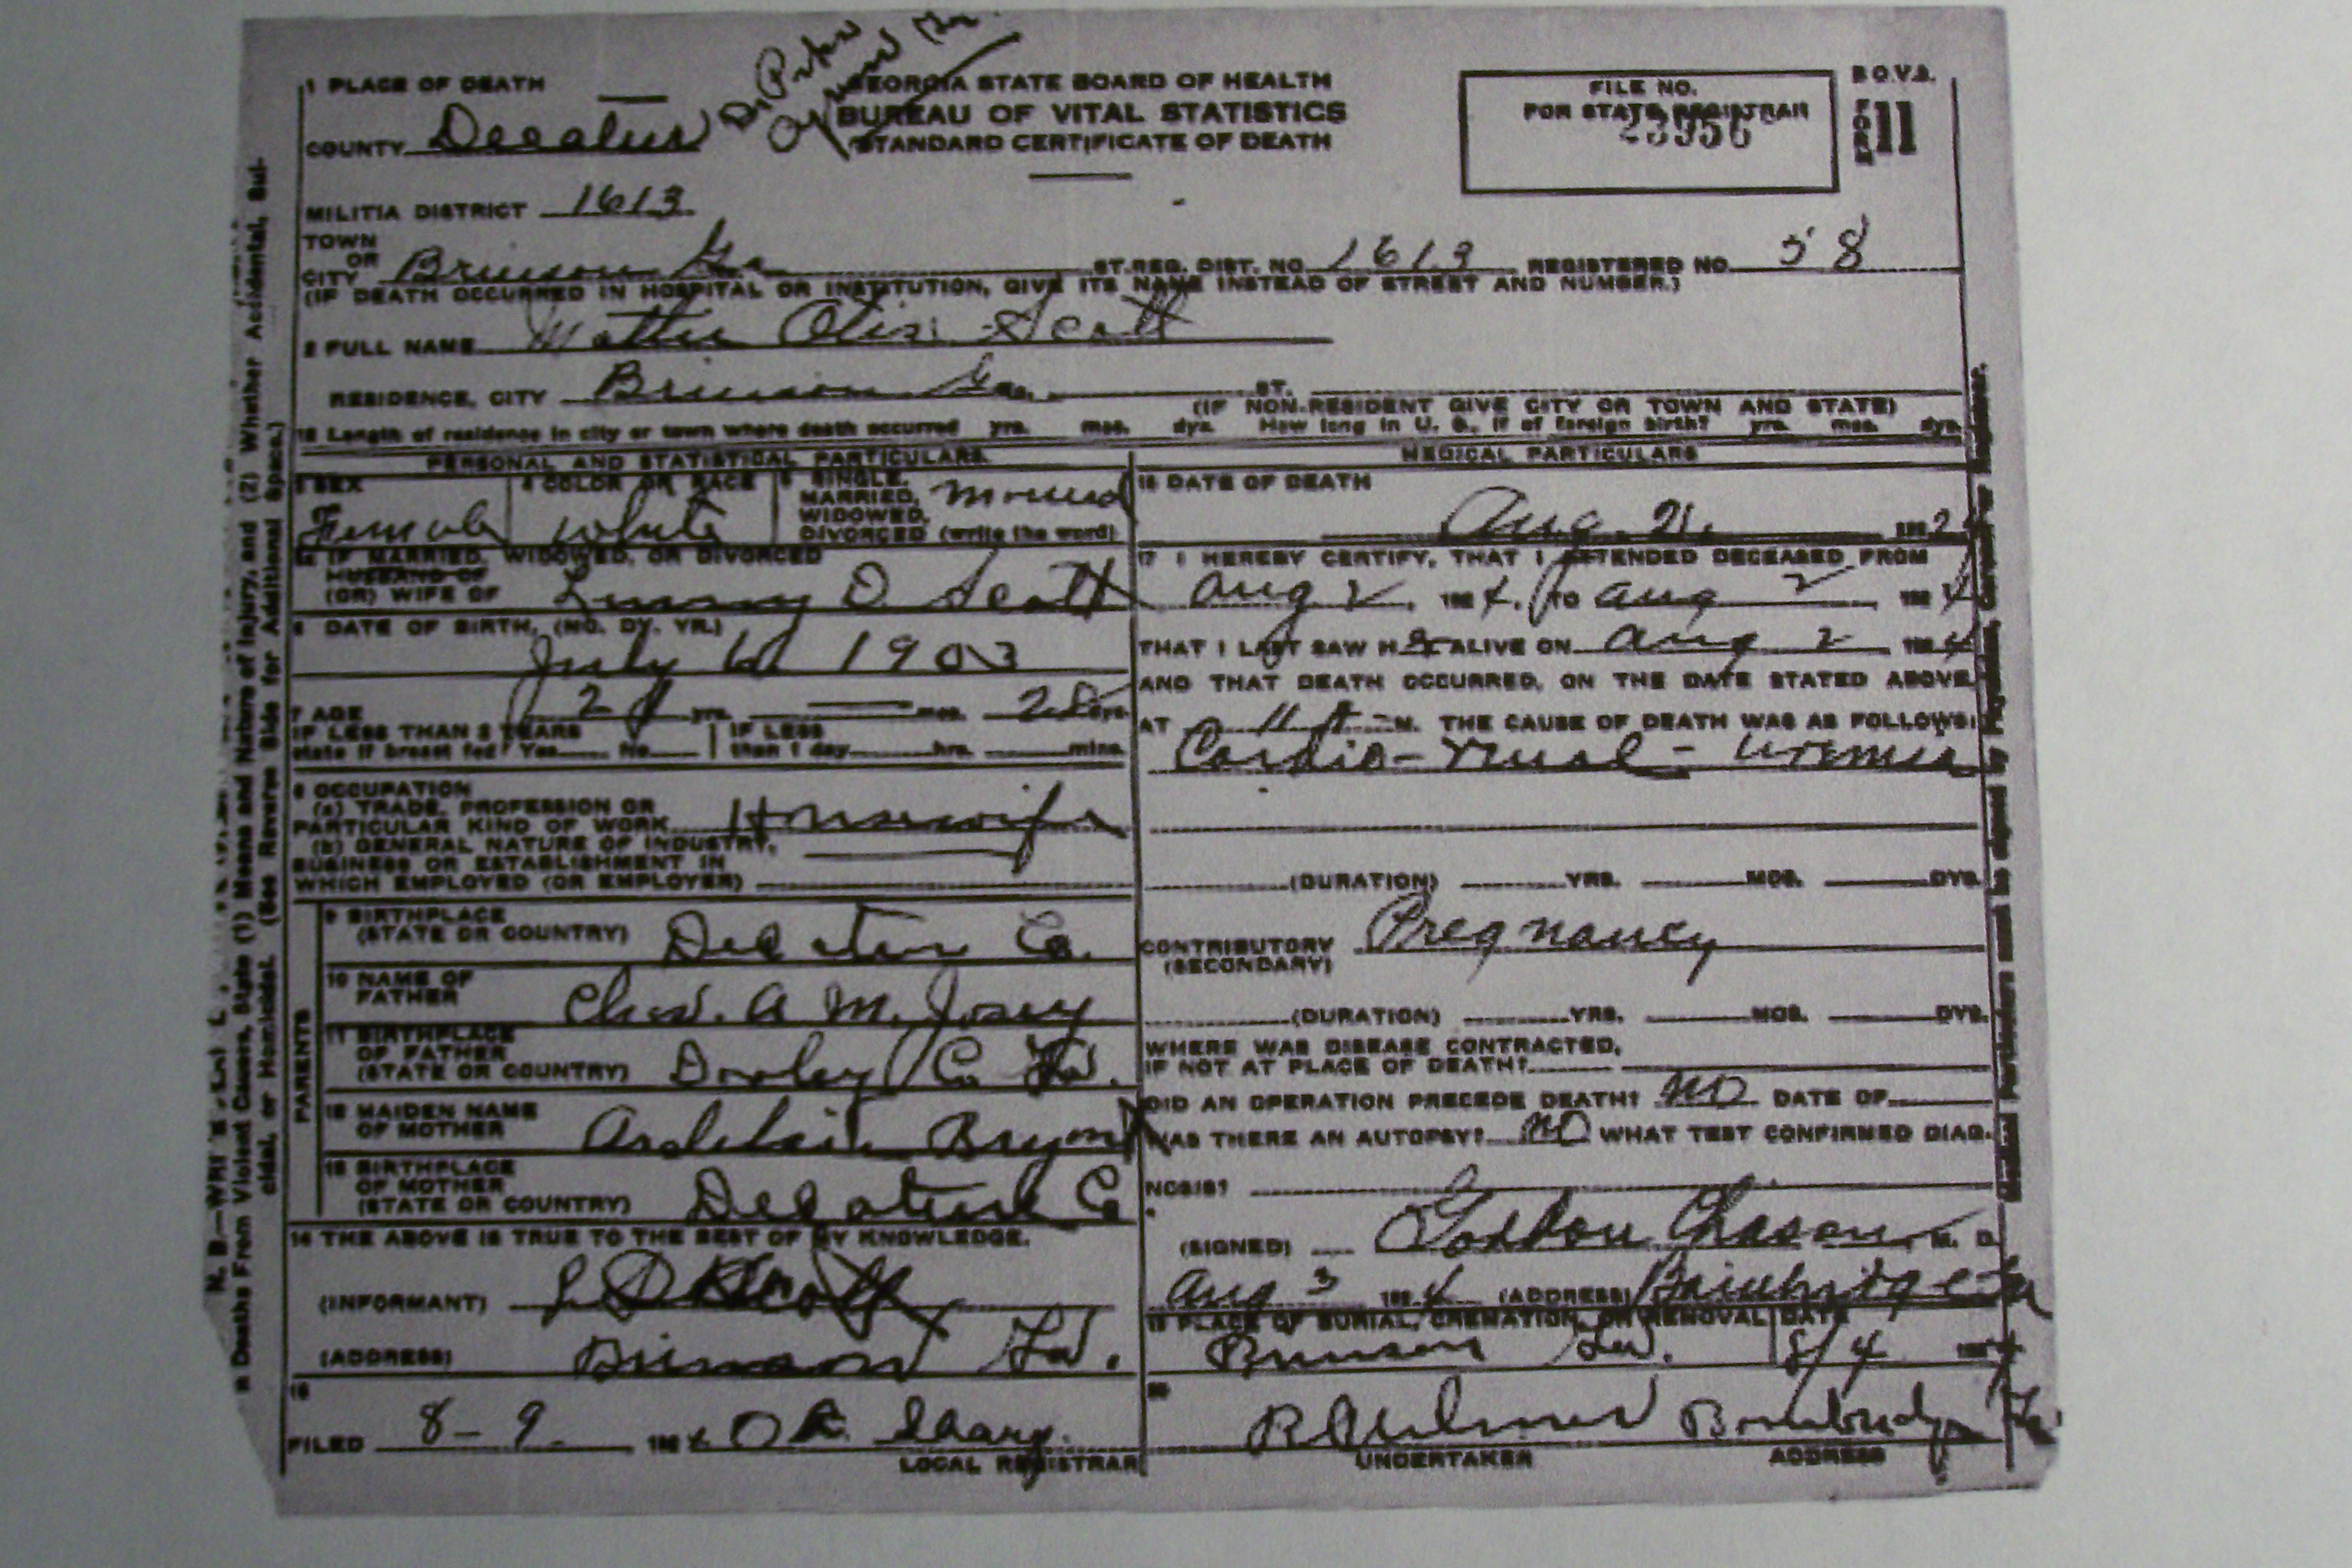 1 PLACE OF DEATH
COUNTY Decatur
GEORGIA STATE BOARD OF HEALTH
BUREAU OF VITAL STATISTICS
STANDARD CERTIFICATE OF DEATH
FILE NO.
FOR STATE REGISTRAR
23956
B.O.V.S.
FORM 11
MILITIA DISTRICT 1613
TOWN OR CITY Brinson Ga ST. REG. DIST. NO. 1613 REGISTERED NO. 58
(IF DEATH OCCURRED IN HOSPITAL OR INSTITUTION, GIVE ITS NAME INSTEAD OF STREET AND NUMBER.)
2 FULL NAME Mattie Scott
RESIDENCE, CITY Brinson Ga. ST.
(IF NON-RESIDENT GIVE CITY OR TOWN AND STATE)
Length of residence in city or town where death occurred yrs. mos. dys. How long in U. S., if of foreign birth? yrs. mos. dys.
PERSONAL AND STATISTICAL PARTICULARS
3 SEX
Female
4 COLOR OR RACE
White
5 SINGLE, MARRIED, WIDOWED, DIVORCED (write the word) Married
IF MARRIED, WIDOWED, OR DIVORCED
HUSBAND OF
(OR) WIFE OF Scott
6 DATE OF BIRTH, (MO. DY. YR.)
July 1903
7 AGE 21 yrs. — mos. 28 dys.
IF LESS THAN 2 YEARS
state if breast fed? Yes No
IF LESS
than 1 day hrs. mins.
8 OCCUPATION
(a) TRADE, PROFESSION OR
PARTICULAR KIND OF WORK Housewife
(b) GENERAL NATURE OF INDUSTRY,
BUSINESS OR ESTABLISHMENT IN
WHICH EMPLOYED (OR EMPLOYER)
PARENTS
9 BIRTHPLACE
(STATE OR COUNTRY) Decatur Co.
10 NAME OF
FATHER Chas. A M. Josey
11 BIRTHPLACE
OF FATHER
(STATE OR COUNTRY) Dooley Co Ga.
12 MAIDEN NAME
OF MOTHER Bryant
13 BIRTHPLACE
OF MOTHER
(STATE OR COUNTRY) Decatur Co
14 THE ABOVE IS TRUE TO THE BEST OF MY KNOWLEDGE.
(INFORMANT) L D Scott
(ADDRESS) Brinson Ga.
15
FILED 8-9 192 4
LOCAL REGISTRAR
MEDICAL PARTICULARS
16 DATE OF DEATH
Aug. 192
17 I HEREBY CERTIFY, THAT I ATTENDED DECEASED FROM
Aug 2, 192 4, TO Aug 2, 192 4
THAT I LAST SAW H ALIVE ON Aug 2 192 4
AND THAT DEATH OCCURRED, ON THE DATE STATED ABOVE,
AT 11 M. THE CAUSE OF DEATH WAS AS FOLLOWS:
Cardio-renal - uremia
(DURATION) YRS. MOS. DYS.
CONTRIBUTORY Pregnancy
(SECONDARY)
(DURATION) YRS. MOS. DYS.
WHERE WAS DISEASE CONTRACTED,
IF NOT AT PLACE OF DEATH?
DID AN OPERATION PRECEDE DEATH? No DATE OF
WAS THERE AN AUTOPSY? No WHAT TEST CONFIRMED DIAG-
NOSIS?
(SIGNED) Gordon Chason, M. D.
Aug 3 192 4 (ADDRESS) Bainbridge Ga
19 PLACE OF BURIAL, CREMATION, OR REMOVAL DATE
Brinson Ga. 8/4 192 4
20
Bainbridge Ga.
UNDERTAKER ADDRESS
a Deaths From Violent Causes, State (1) Means and Nature of Injury, and (2) Whether Accidental, Sui-
cidal, or Homicidal. (See Reverse Side for Additional Space.)